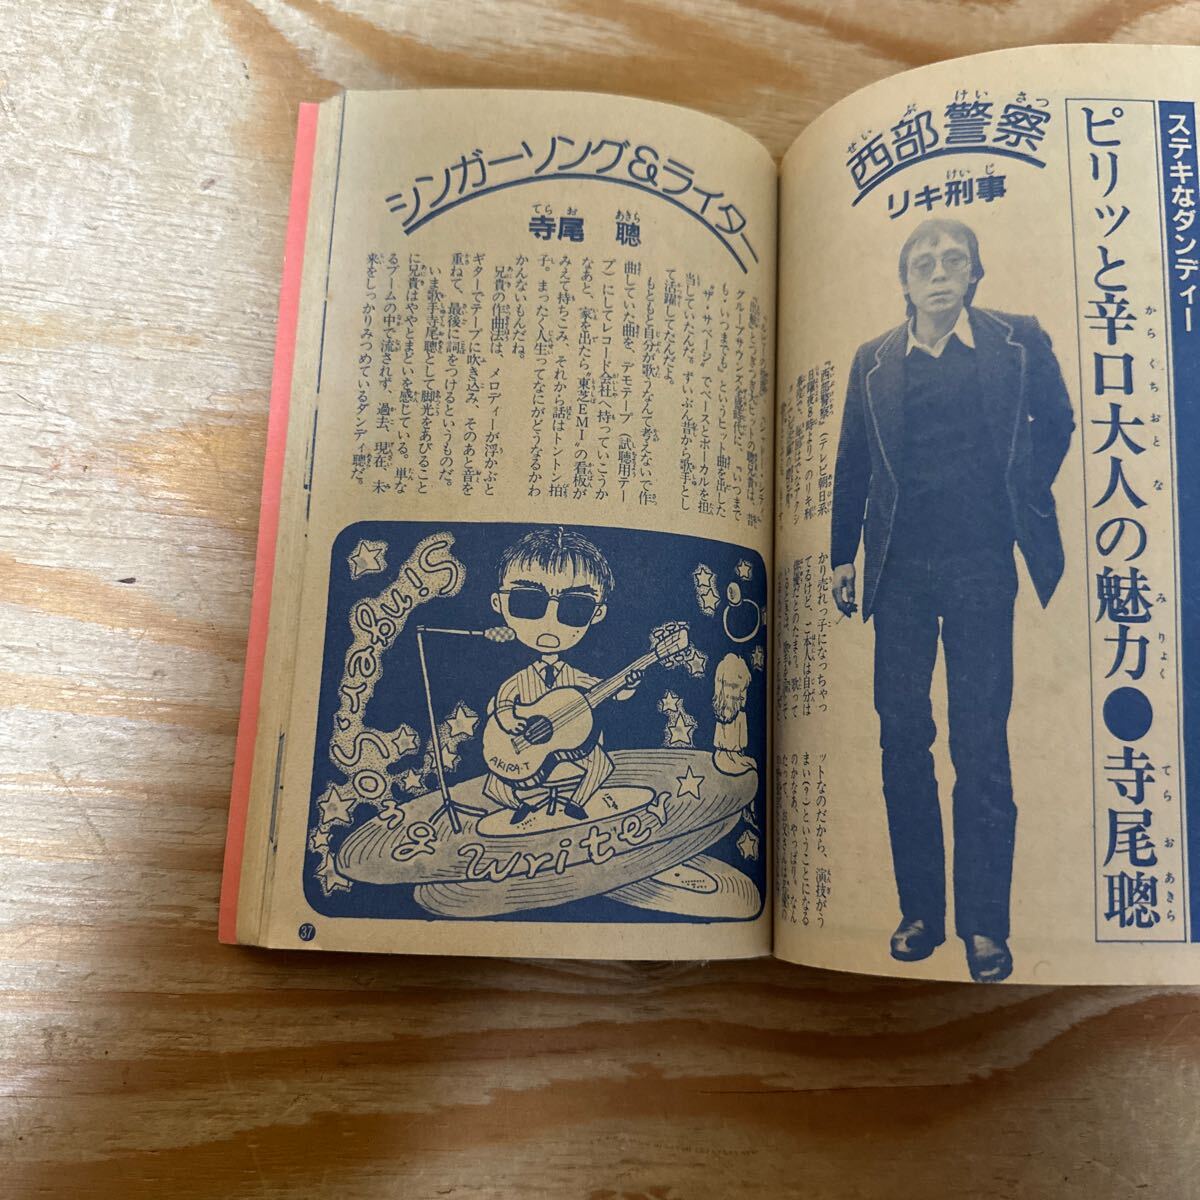 ステキなダンディー
ピリッと辛口大人の魅力●寺尾聰
からぐちおとな
みりょく
てらおあきら
せいぶけいさつ
西部警察
けいじ
リキ刑事
『西部警察』（テレビ朝日系
日曜夜8時より）のリキ刑
かり売れっ子になっちゃっ
てるけど、ご本人は自分は
俳優だとのたまう。歌って
ットなのだから、演技がう
まい（？）ということになる
のかなあ、やっぱり。なん
シンガーソング&ライター
てらお あきら
寺尾 聰
も・いつまでも』というヒット曲を出した
"ザ・サベージ"でベースとボーカルを担
当していたんだ。ずいぶん昔から歌手とし
て活躍してたんだよ。
もともと自分が歌うなんて考えないで作
曲していた曲を、デモテープ（試聴用テー
プ）にしてレコード会社へ持っていこうか
なあと、家を出たら"東芝EMI"の看板が
みえて持ちこみ、それから話はトントン拍
子。まったく人生ってなにがどうなるかわ
かんないもんだね。
兄貴の作曲法は、メロディーが浮かぶと
ギターでテープに吹き込み、そのあと音を
重ねて、最後に詞をつけるというものだ。
いま歌手寺尾聰として脚光をあびること
に兄貴はややとまどいを感じている。単な
るブームの中で流されず、過去、現在、未
来をしっかりみつめているダンディ聰だ。
Singer·Song
& writer
AKIRA·T
37